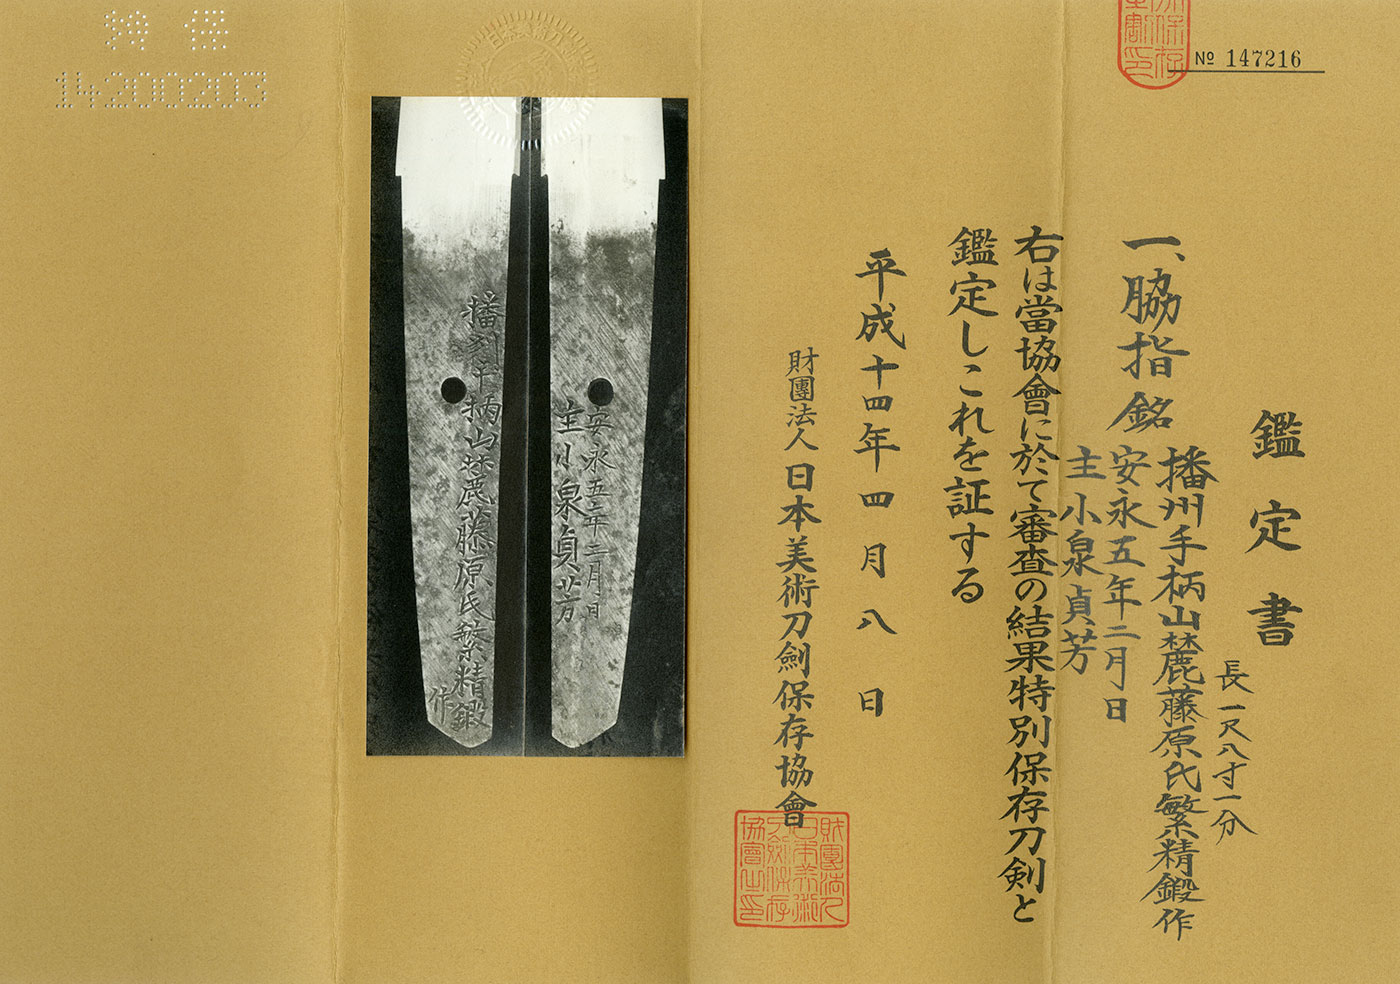 特保
14200203
№ 147216
鑑定書
一、脇指 銘 播州手柄山麓藤原氏繁精鍛作
長一尺八寸一分
安永五年二月日
主小泉貞芳
右は當協會に於て審査の結果特別保存刀剣と
鑑定しこれを証する
平成十四年四月八日
財團法人 日本美術刀劍保存協會
播州手柄山麓藤原氏繁精鍛
作
安永五年二月日
主小泉貞芳
財團法人
日本美術
刀劍保存
協會之印